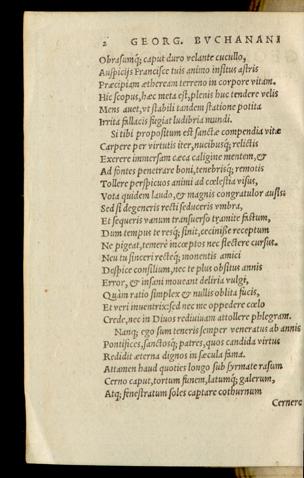 2 GEORG. BVCHANANI
Obrasumq́; caput duro velante cucullo,
Auspicijs Francisce tuis animo insitus astris
Præcipiam ætheream terreno in corpore vitam.
Hic scopus, hæc meta est, plenis huc tendere velis
Mens auet, vt stabili tandem statione potita
Irrita fallacis fugiat ludibria mundi.
Si tibi propositum est sanctæ compendia vitæ
Carpere per virtutis iter, nucibusq́; relictis
Exerere immersam cæca caligine mentem, &
Ad fontes penetrare boni, tenebrisq́; remotis
Tollere perspicuos animi ad cœlestia visus,
Vota quidem laudo, & magnis congratulor ausis:
Sed si degeneris recti seduceris vmbra,
Et sequeris vanum transuerso tramite fictum,
Dum tempus te resq́; sinit, cecinisse receptum
Ne pigeat, temerè incœptos nec flectere cursus.
Neu tu sinceri recteq́; monentis amici
Despice consilium, nec te plus obsitus annis
Error, & insani moueant deliria vulgi,
Quàm ratio simplex & nullis oblita fucis,
Et veri inuentrix: sed nec me oppedere cœlo
Crede, nec in Diuos rediuiuam attollere phlegram.
Nanq; ego sum teneris semper veneratus ab annis
Pontifices, sanctosq́; patres, quos candida virtus
Redidit æterna dignos in sæcula fama.
Attamen haud quoties longo sub syrmate rasum
Cerno caput, tortum funem, latumq́; galerum,
Atq; fenestratum soles captare cothurnum
Cernere